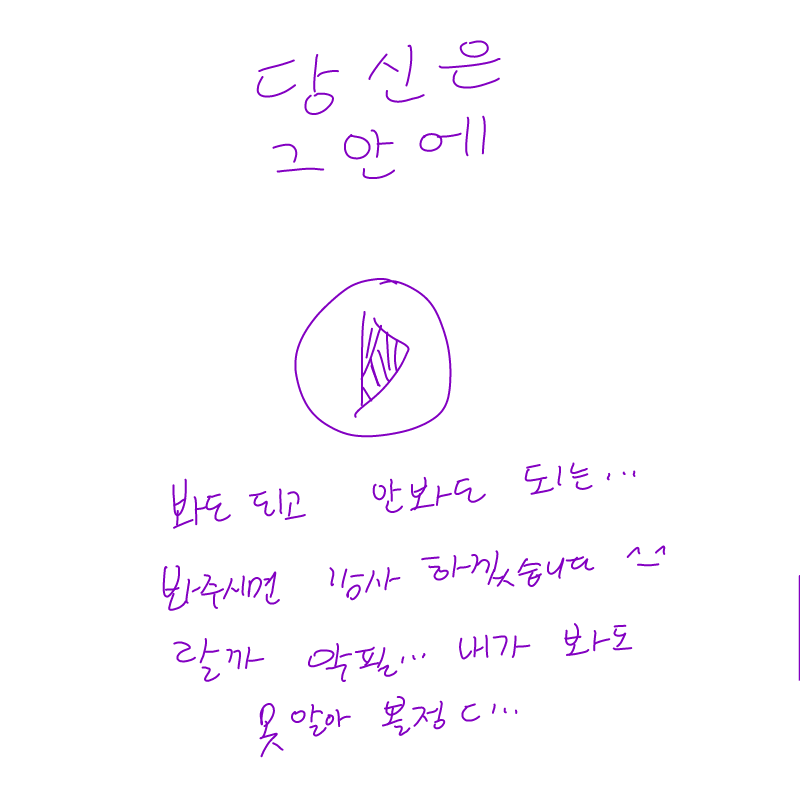 당신은
그 안에
봐도 되고 안봐도 되는...
봐주시면 감사 하겠습니다 ^_^
랄까 악필... 내가 봐도
못 알아 볼정ㄷ...